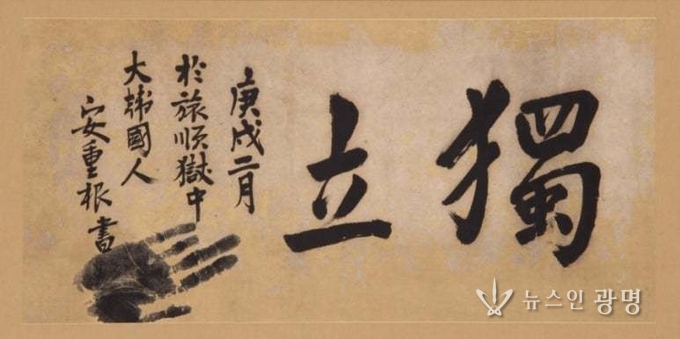 獨立
庚戌二月
於旅順獄中
大韓國人
安重根書
뉴스인 광명